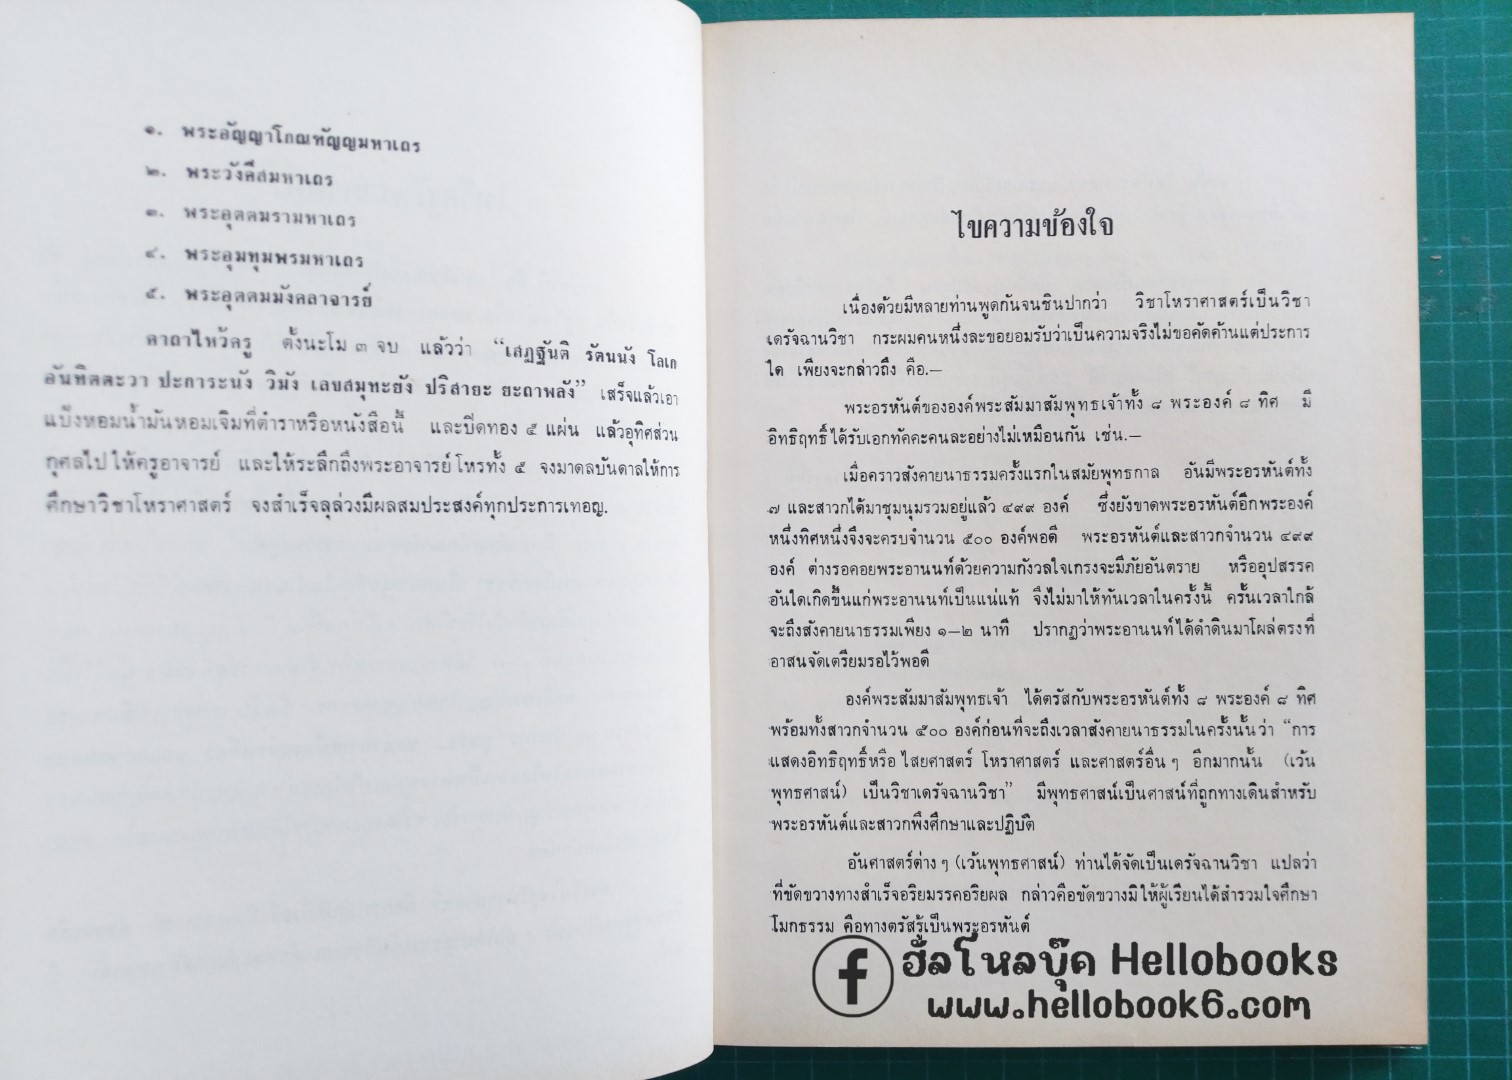 ๑. พระอัญญาโกณฑัญญมหาเถร
๒. พระวังคีสมหาเถร
๓. พระอุตตมรามหาเถร
๔. พระอุมทุมพรมหาเถร
๕. พระอุตตมมังคลาจารย์
คาถาไหว้ครู ตั้งนะโม ๓ จบ แล้วว่า “เสฏฐันติ รัตนนัง โลเก
อันทิตตะวา ปะการะนัง วิมัง เลขสมุทะยัง ปริสายะ ยะถาพลัง” เสร็จแล้วเอา
แป้งหอมน้ำมันหอมเจิมที่ตำราหรือหนังสือนี้ และปิดทอง ๕ แผ่น แล้วอุทิศส่วน
กุศลไปให้ครูอาจารย์ และให้ระลึกถึงพระอาจารย์โหรทั้ง ๕ จงมาดลบันดาลให้การ
ศึกษาวิชาโหราศาสตร์ จงสำเร็จลุล่วงมีผลสมประสงค์ทุกประการเทอญ.
ไขความข้องใจ
เนื่องด้วยมีหลายท่านพูดกันจนชินปากว่า วิชาโหราศาสตร์เป็นวิชา
เดรัจฉานวิชา กระผมคนหนึ่งละขอยอมรับว่าเป็นความจริงไม่ขอคัดค้านแต่ประการ
ใด เพียงจะกล่าวถึง คือ.—
พระอรหันต์ขององค์พระสัมมาสัมพุทธเจ้าทั้ง ๘ พระองค์ ๘ ทิศ มี
อิทธิฤทธิ์ได้รับเอกทัคคะคนละอย่างไม่เหมือนกัน เช่น.—
เมื่อคราวสังคายนาธรรมครั้งแรกในสมัยพุทธกาล อันมีพระอรหันต์ทั้ง
๗ และสาวกได้มาชุมนุมรวมอยู่แล้ว ๔๙๙ องค์ ซึ่งยังขาดพระอรหันต์อีกพระองค์
หนึ่งทิศหนึ่งจึงจะครบจำนวน ๕๐๐ องค์พอดี พระอรหันต์และสาวกจำนวน ๔๙๙
องค์ ต่างรอคอยพระอานนท์ด้วยความกังวลใจเกรงจะมีภัยอันตราย หรืออุปสรรค
อันใดเกิดขึ้นแก่พระอานนท์เป็นแน่แท้ จึงไม่มาให้ทันเวลาในครั้งนี้ ครั้นเวลาใกล้
จะถึงสังคายนาธรรมเพียง ๑—๒ นาที ปรากฏว่าพระอานนท์ได้ดำดินมาโผล่ตรงที่
อาสนจัดเตรียมรอไว้พอดี
องค์พระสัมมาสัมพุทธเจ้า ได้ตรัสกับพระอรหันต์ทั้ง ๘ พระองค์ ๘ ทิศ
พร้อมทั้งสาวกจำนวน ๕๐๐ องค์ก่อนที่จะถึงเวลาสังคายนาธรรมในครั้งนั้นว่า “การ
แสดงอิทธิฤทธิ์หรือ ไสยศาสตร์ โหราศาสตร์ และศาสตร์อื่นๆ อีกมากนั้น (เว้น
พุทธศาสน์) เป็นวิชาเดรัจฉานวิชา” มีพุทธศาสน์เป็นศาสน์ที่ถูกทางเดินสำหรับ
พระอรหันต์และสาวกพึงศึกษาและปฏิบัติ
อันศาสตร์ต่างๆ (เว้นพุทธศาสน์) ท่านได้จัดเป็นเดรัจฉานวิชา แปลว่า
ที่ขัดขวางทางสำเร็จอริยมรรคอริยผล กล่าวคือขัดขวางมิให้ผู้เรียนได้สำรวมใจศึกษา
โมกธรรม คือทางตรัสรู้เป็นพระอรหันต์
ฮัลโหลบุ๊ค Hellobooks
www.hellobook6.com